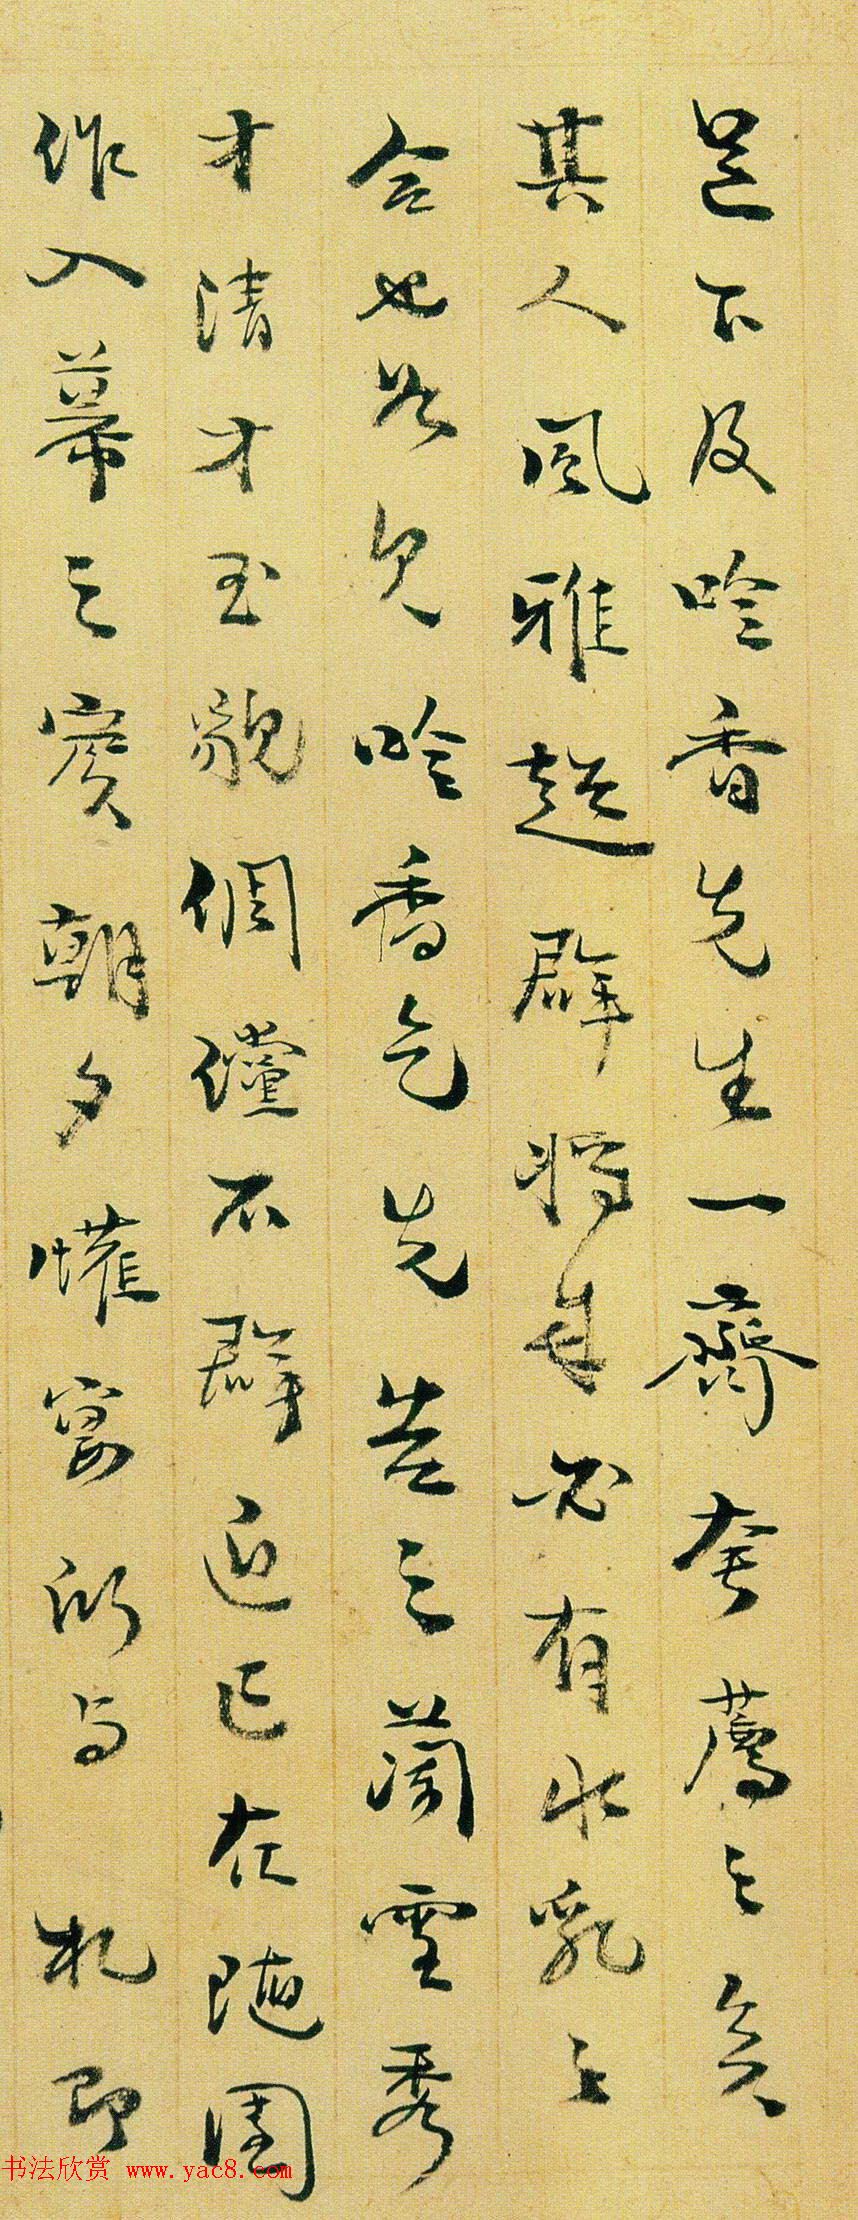 足下及吟香先生一齊夸薦之矣
其人風雅超群將來必有水乳之
合也如見吟香乞先告之蘭雪秀
才清才玉貌倜儻不群近已在隨園
作入幕之賓朝夕懽宴所与札即
书法欣赏 www.yac8.com